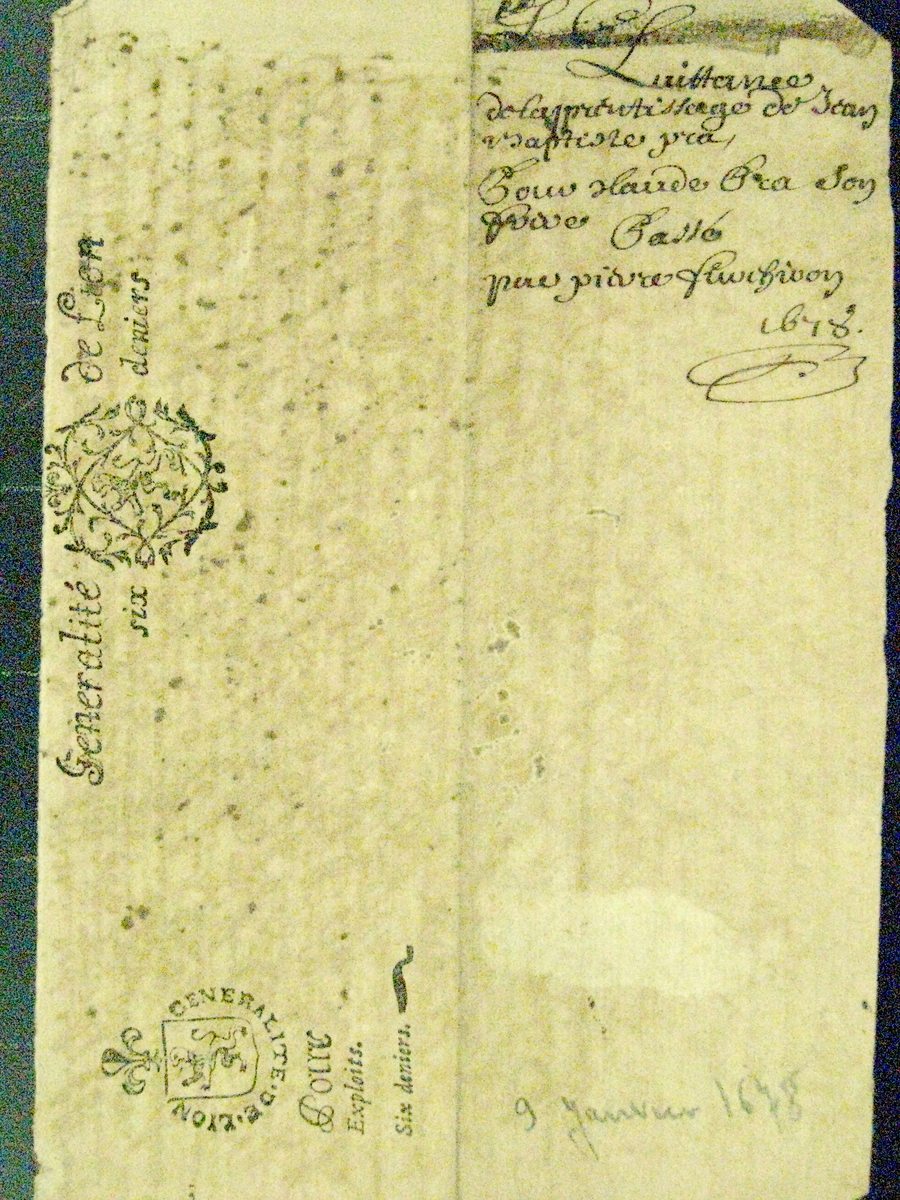 Quittance
de laprentissage de Jean
Baptiste pra
Pour Claude Pra son
frere Passé
par pierre
1678.
Generalité de Lion
six deniers
GENERALITE·DE·LYON
Pour
Exploits.
Six deniers.
9 Janvier 1678